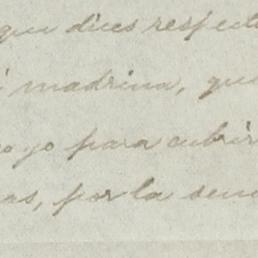 que dices respecto
i madrina, que
o yo para cubrir
as, por la senc